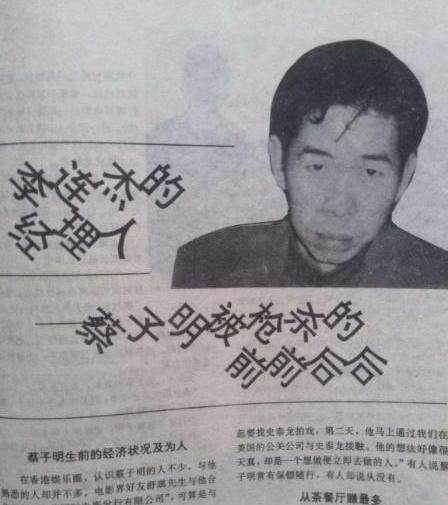 李连杰的
经理人
蔡子明被枪杀的
前前后后
蔡子明生前的经济状况及为人
在香港娱乐圈，认识蔡子明的人不少，与他
熟悉的人却并不多，电影界好友舒琪先生与他合
发行有限公司"，可算是与
起要找史泰龙拍戏，第二天，他马上通过我们在
美国的公关公司与史泰龙接触。他的想法好像很
天真，却是一个想做便立即去做的人。"有人说蔡
子明常有保镖随行，有人却说从没有。
从茶餐厅赚最多